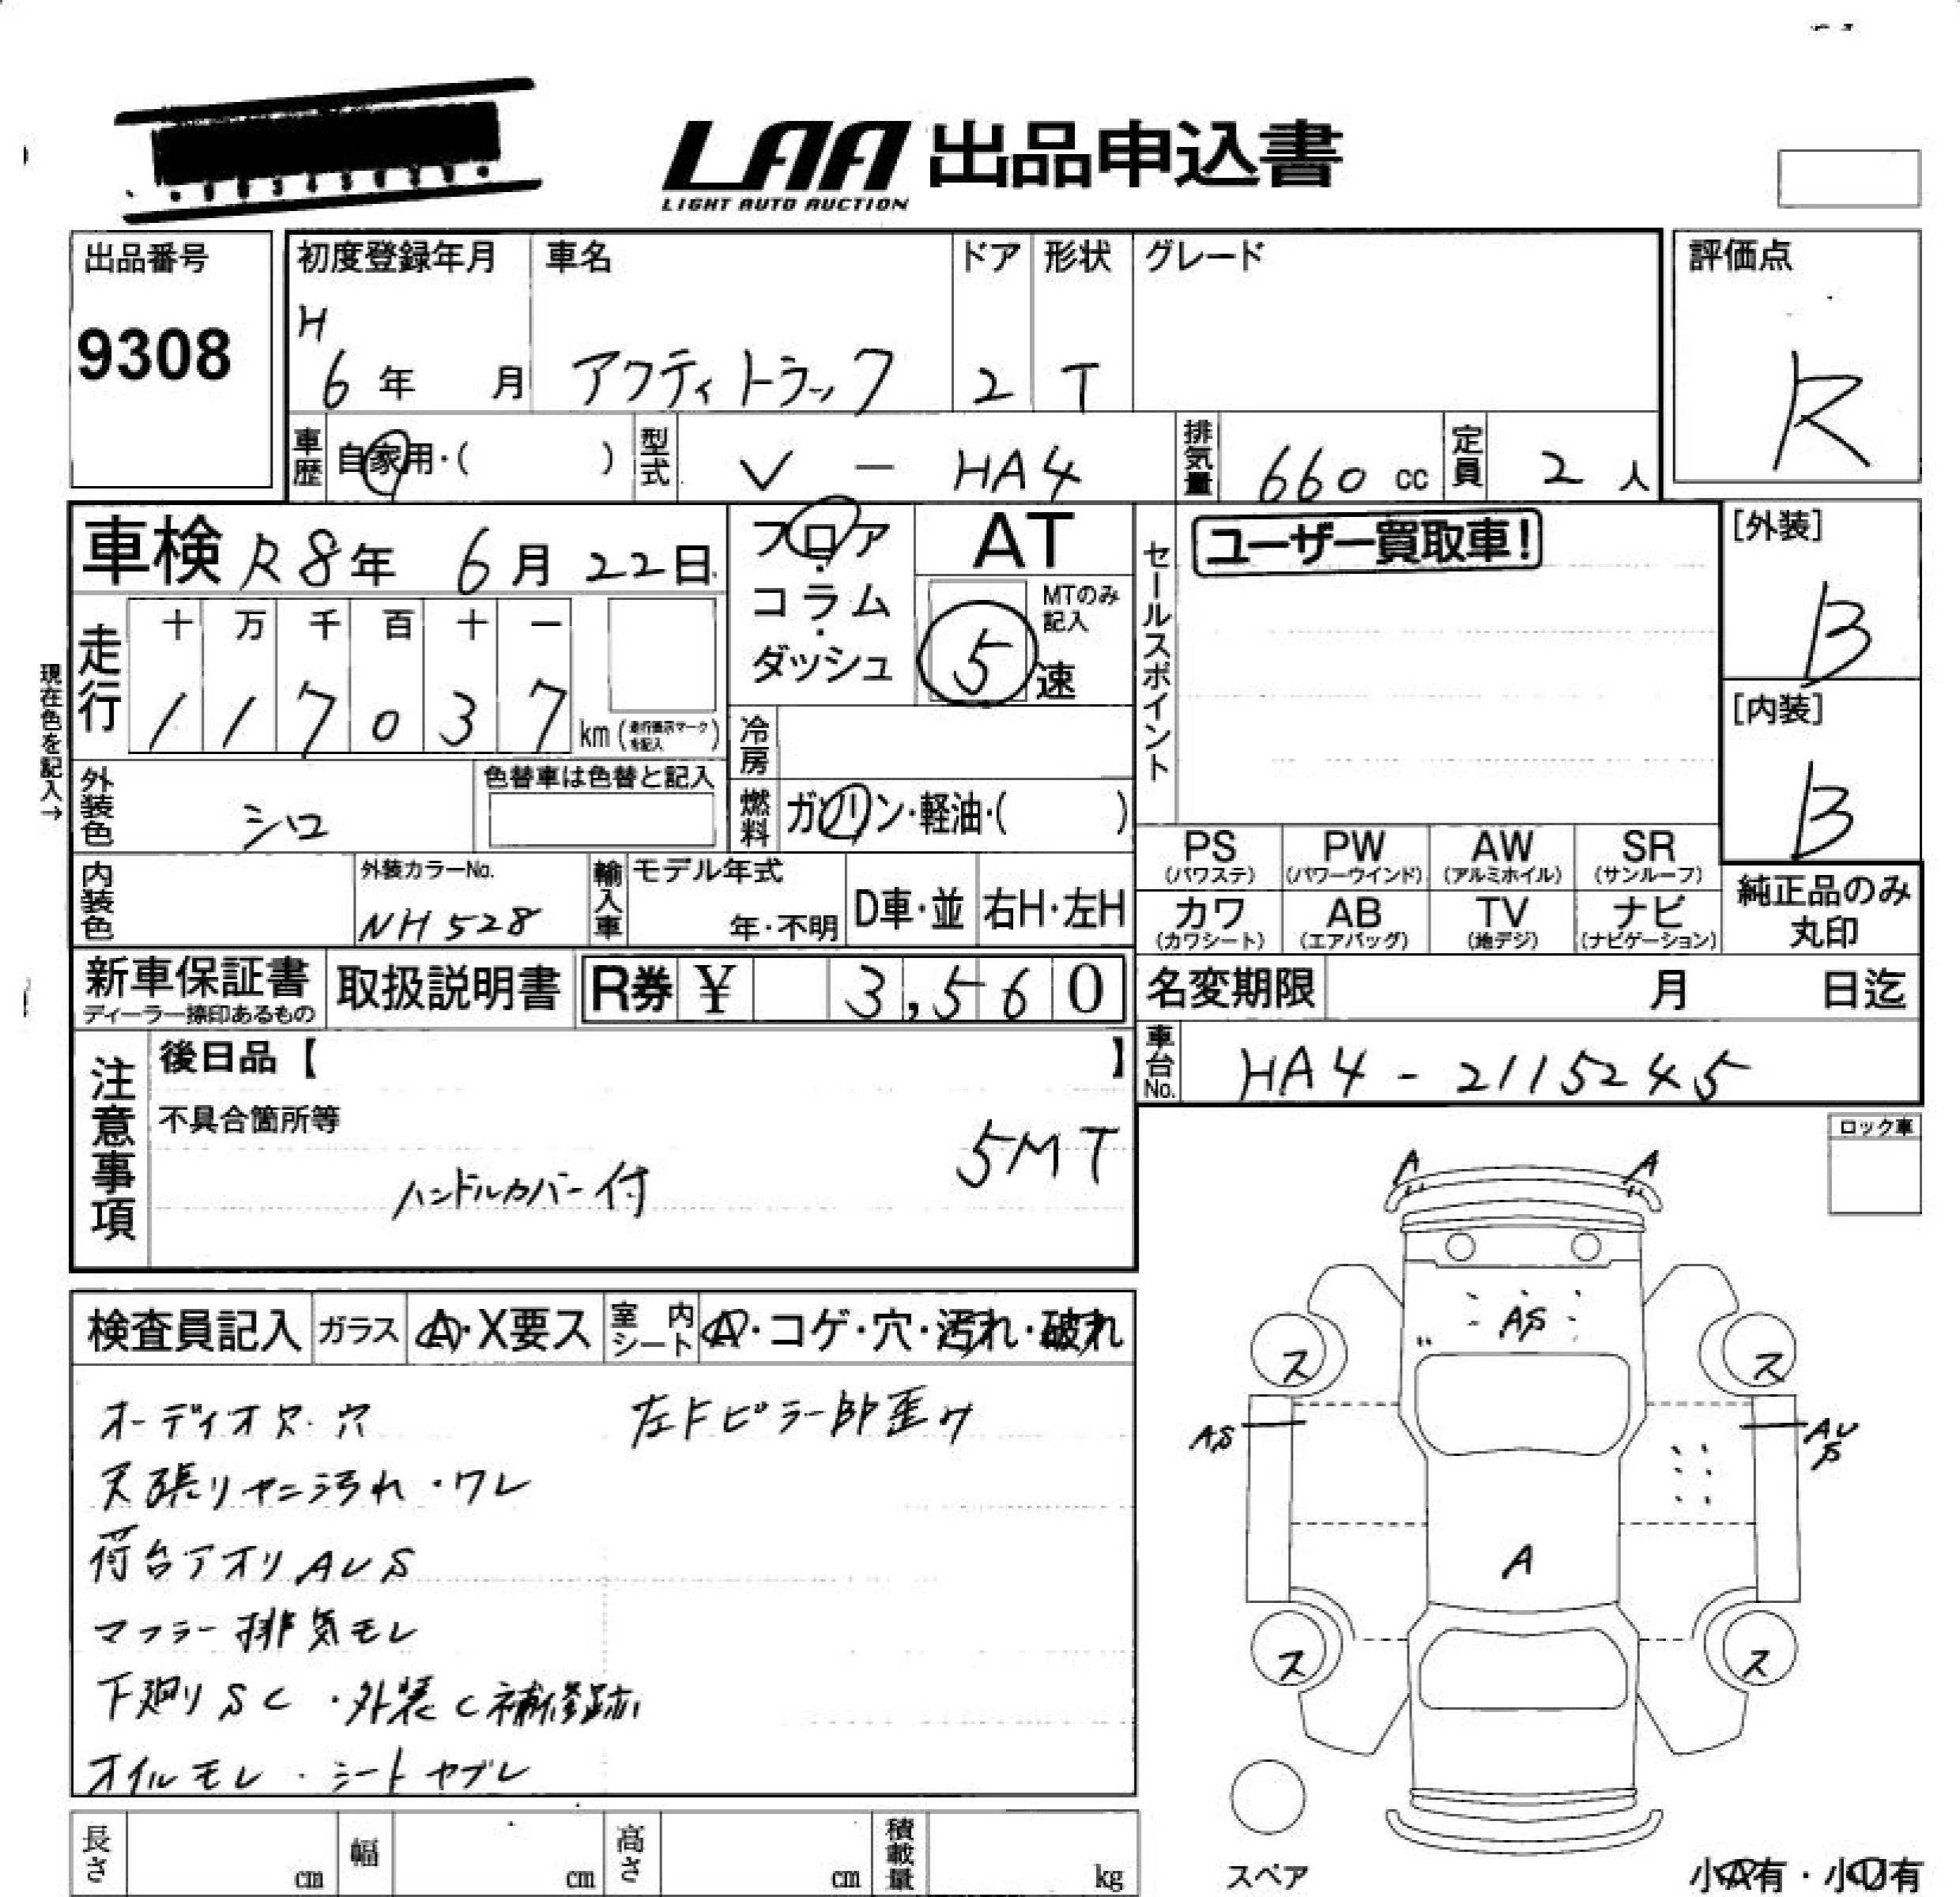 LAA 出品申込書
LIGHT AUTO AUCTION
出品番号
9308
初度登録年月
H
6年 月
車名
アクティトラック
ドア
2
形状
T
グレード
評価点
R
車歴
自家用・( )
型式
V － HA4
排気量
660 cc
定員
2 人
車検 R8年 6月 22日
フロア・コラム・ダッシュ
AT
MTのみ記入
5 速
セールスポイント
ユーザー買取車!
[外装]
B
[内装]
B
現在色を記入→
走行
十 万 千 百 十 一
1 1 7 0 3 7
km(走行表示マークを記入)
冷房
外装色
シロ
色替車は色替と記入
燃料
ガソリン・軽油・( )
内装色
外装カラーNo.
NH528
輸入車
モデル年式
年・不明
D車・並
右H・左H
PS (パワステ)
PW (パワーウインド)
AW (アルミホイル)
SR (サンルーフ)
カワ (カワシート)
AB (エアバッグ)
TV (地デジ)
ナビ (ナビゲーション)
純正品のみ
丸印
新車保証書
ディーラー捺印あるもの
取扱説明書
R券 ¥ 3,560
名変期限 月 日迄
車台No.
HA4 - 2115245
注意事項
後日品【 】
不具合箇所等
5MT
ハンドルカバー付
ロック車
検査員記入
ガラス
A・X要ス
室内シート
A・コゲ・穴・汚れ・破れ
オーディオ欠・穴
左Fピラー部歪み
天張りヤニ汚れ・ワレ
荷台アオリAUS
マフラー排気モレ
下廻りSC・外装C補修跡
オイルモレ・シートヤブレ
A A
AS
ス ス
AS
AU
S
A
ス ス
スペア
小A有・小U有
長さ cm
幅 cm
高さ cm
積載量 kg